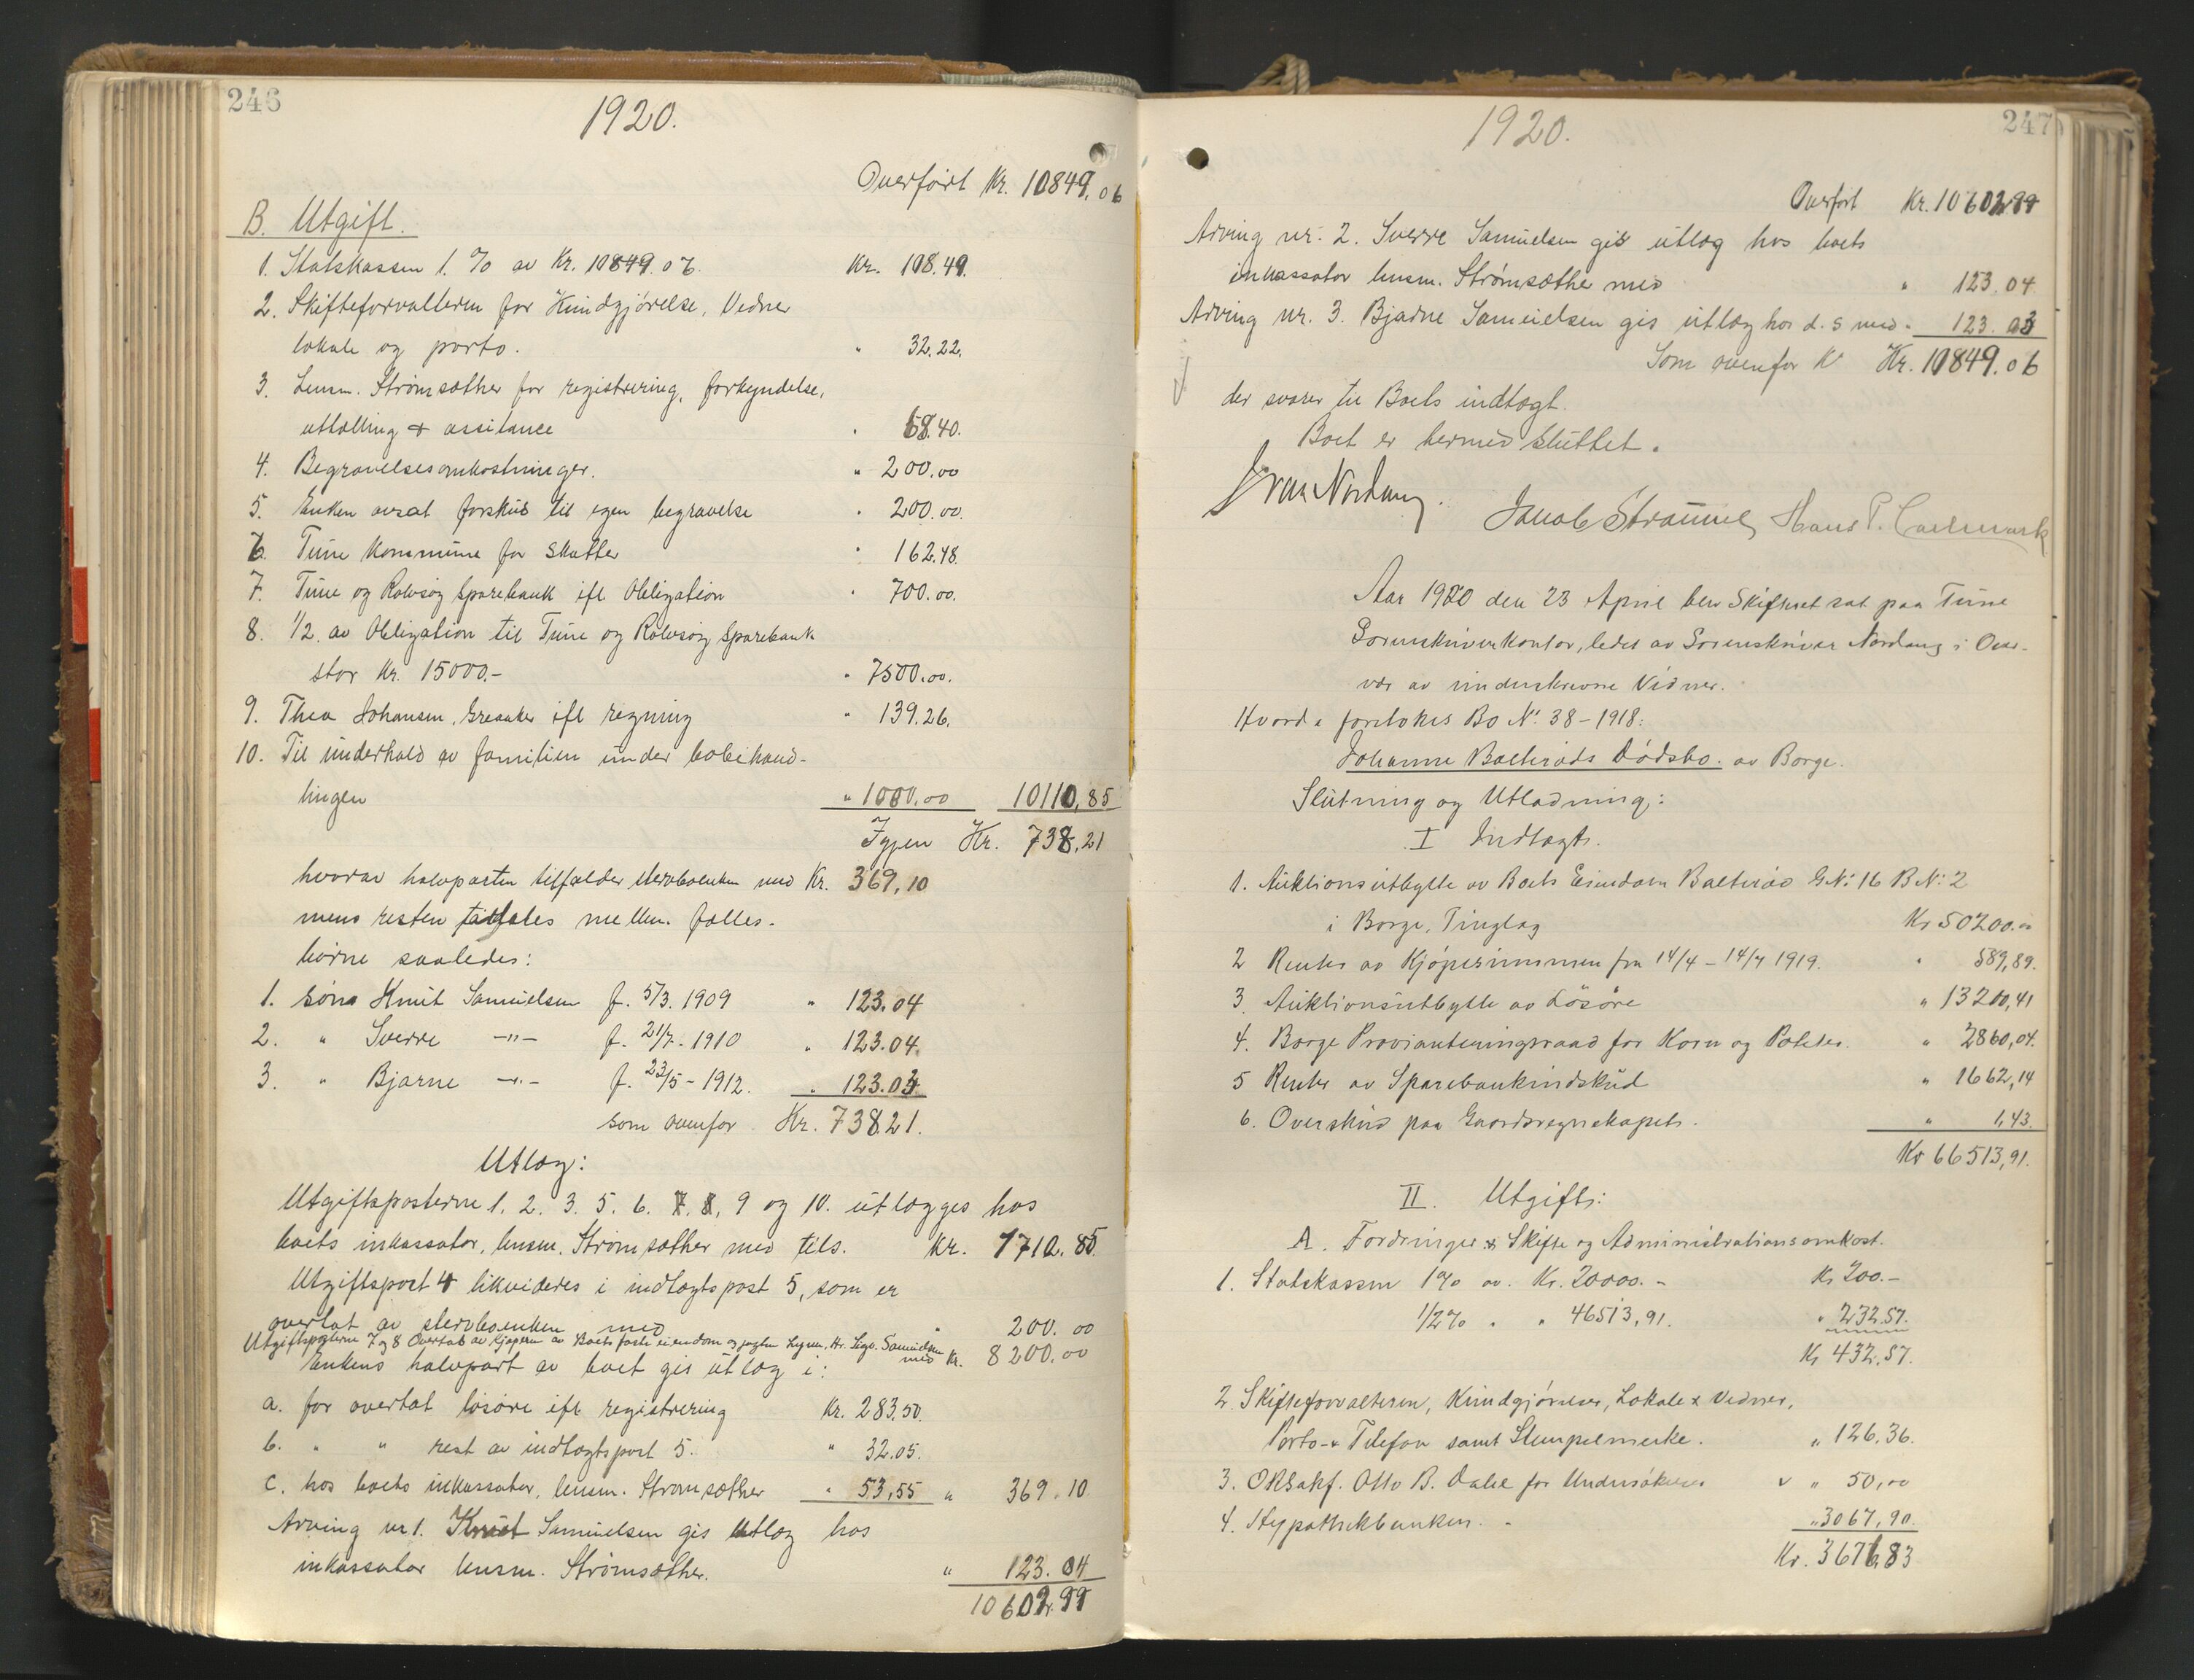 246
1920.
Overført Kr. 10849.06
B. Utgift.
1. Statskassen 1. % av Kr. 10849.06. Kr. 108.49.
2. Skifteforvalteren for Kundgjørelse, Vedner
lokale og porto. " 32.22.
3. Lensm. Strømsæther for registrering, forkyndelse,
utlodning & assitance " 68.40.
4. Begravelsesomkostninger. " 200.00
5. Enken avsat forskud til egen begravelse " 200.00.
6. Tune Kommune for Skatter " 162.48.
7. Tune og Rolvsøy Sparebank ifl Obligation " 700.00.
8. 1/2 av Obligation til Tune og Rolvsøy Sparebank
stor Kr. 15000.- " 7500.00.
9. Thea Johansen, Greaaker ifl regning " 139.26.
10. Til underhold av familien under bobehand-
lingen " 1000.00 10110,85
Igjen Kr. 738,21
hvorav halvparten tilfalder stervboenken med Kr. 369,10
mens resten fordeles mellem fælles-
børne saaledes:
1. søn Knut Samuelsen f. 5/3. 1909 " 123.04
2. " Sverre -"- f. 21/7 - 1910 " 123.04.
3. " Bjarne -"- f. 23/5 - 1912. " 123.03
som ovenfor Kr. 738.21.
Utlæg:
Utgiftsposterne 1. 2. 3. 5. 6. 7. 8, 9 og 10. utlægges hos
boets inkassator, lensm. Strømsæther med tils. Kr. 1710.85.
Utgiftspost 4 likvideres i indtægtspost 5, som er
overtat av stervboenken med " 200.00
Utgiftsposterne 7 og 8 Overtas av Kjøperen av Boets faste eiendom Hr. Sigv. Samuelsen med Kr. 8200.00
Enkens halvpart av boet gis utlæg i:
a. for overtat løsøre ifl registrering Kr. 283,50.
b. " " rest av indtægtspost 5. " 32.05.
c. hos boets inkassator, lensm. Strømsæther " 53,55 " 369.10.
Arving nr 1. Knut Samuelsen gis utlæg hos
inkassator lensm. Strømsæther. " 123.04
10602.99
247
1920.
Overført Kr. 10602.99
Arving nr. 2. Sverre Samuelsen gis utlæg hos boets
inkassator lensm. Strømsæther med " 123.04
Arving nr. 3. Bjarne Samuelsen gis utlæg hos d. s med " 123.03
Som ovenfor Kr. 10849.06
der svarer til Boets indtægt.
Boet er hermed sluttet.
Ivar Nordang. Jacob Strømnes Hans P. Carlmark
Aar 1920 den 23 April blev Skifteret sat paa Tune
Sorenskriverkontor, ledet av Sorenskriver Nordang i Over-
vær av underskrevne Vidner.
Hvorda foretokes Bo No. 38 - 1918:
Johanne Balteruds Dødsbo. av Borge.
Slutning og Utlodning:
I Indtægt.
1. Auktionsutbytte av Boets Eiendom Balterud GNo. 16 BNo. 2
i Borge, Tinglag Kr 50200.00
2 Renter av Kjøpesummen fra 14/4 - 14/7 1919. " 589,89.
3. Auktionsutbytte av Løsøre " 13200,41
4. Borge Provianteringsraad for Korn og Poteter. " 2860,04.
5 Renter av Sparebankindskud " 1662,14
6. Overskud paa Gaardsregnskapet. " 1,43.
Kr 66513,91.
II. Utgift:
A. Fordringer & Skifte og Administrationsomkost.
1. Statskassen 1% av. Kr. 20000.- Kr 200.-
1/2% " " 46513,91. " 232.57.
Kr 432,57.
2. Skifteforvalteren, Kundgjørelser, Lokale & Vidner,
Porto- & Telefon samt Stempelmerke. " 126.36.
3. ORsakf. Otto B. Dahl for Undersøkelse " 50,00
4. Hypothekbanken. " 3067,90.
Kr. 3676,83